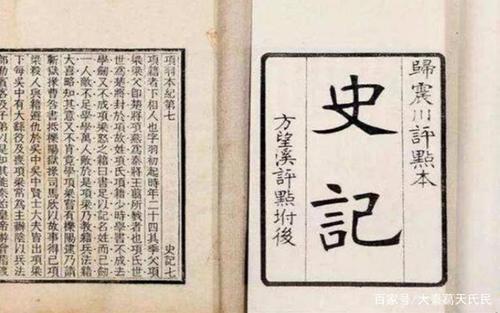 項羽本紀第七
項籍者下相人也字羽初起時年二十四其季父項
梁梁父即楚將項燕爲秦將王翦所戮者也項氏世
世爲楚將封於項故姓項氏項籍少時學書不成去
學劍又不成項梁怒之籍曰書足以記名姓而已劍
一人敵不足學學萬人敵於是項梁乃教籍兵法籍
大喜略知其意又不肯竟學項梁嘗有櫟陽逮乃請
蘄獄掾曹咎書抵櫟陽獄掾司馬欣以故事得已項
梁殺人與籍避仇於吳中吳中賢士大夫皆出項梁
下每吳中有大繇役及喪項梁常爲主辦陰以兵法
部勒賓客及子弟以是知其能秦始皇帝游會稽渡
史記七
歸震川評點本
史記
方望溪評點坿後
百家号/大秦葛天氏民